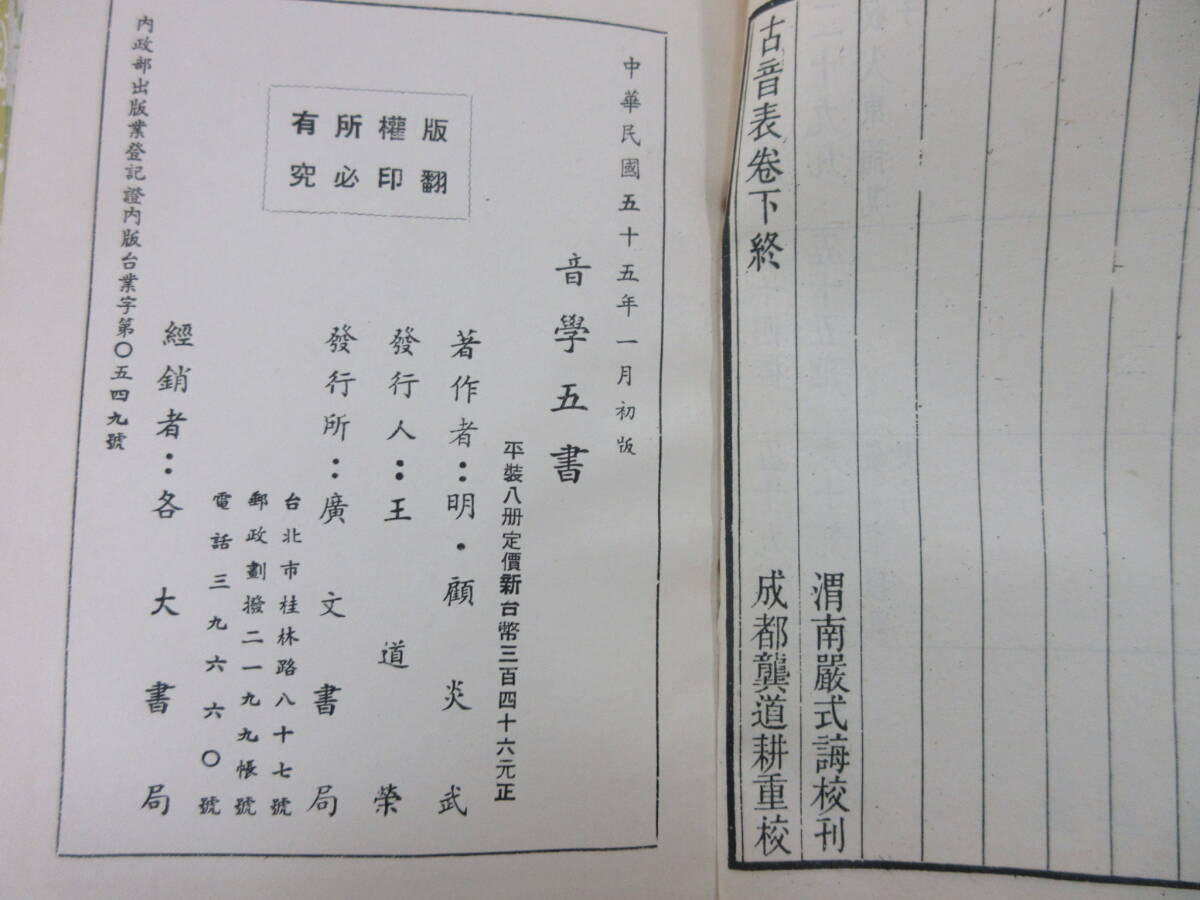 古音表卷下終
渭南嚴式誨校刊
成都龔道耕重校
中華民國五十五年一月初版
音學五書
平裝八册定價新台幣三百四十六元正
著作者：明·顧炎武
發行人：王道榮
發行所：廣文書局
台北市桂林路八十七號
郵政劃撥二一九九帳號
電話三九六六〇號
經銷者：各大書局
版權所有
翻印必究
內政部出版業登記證內版台業字第〇五四九號